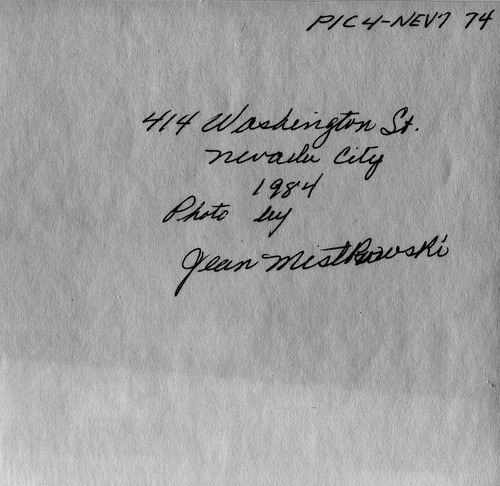 PIC 4-NEV7 74
414 Washington St.
Nevada City
1984
Photo by
Jean Mistkowski